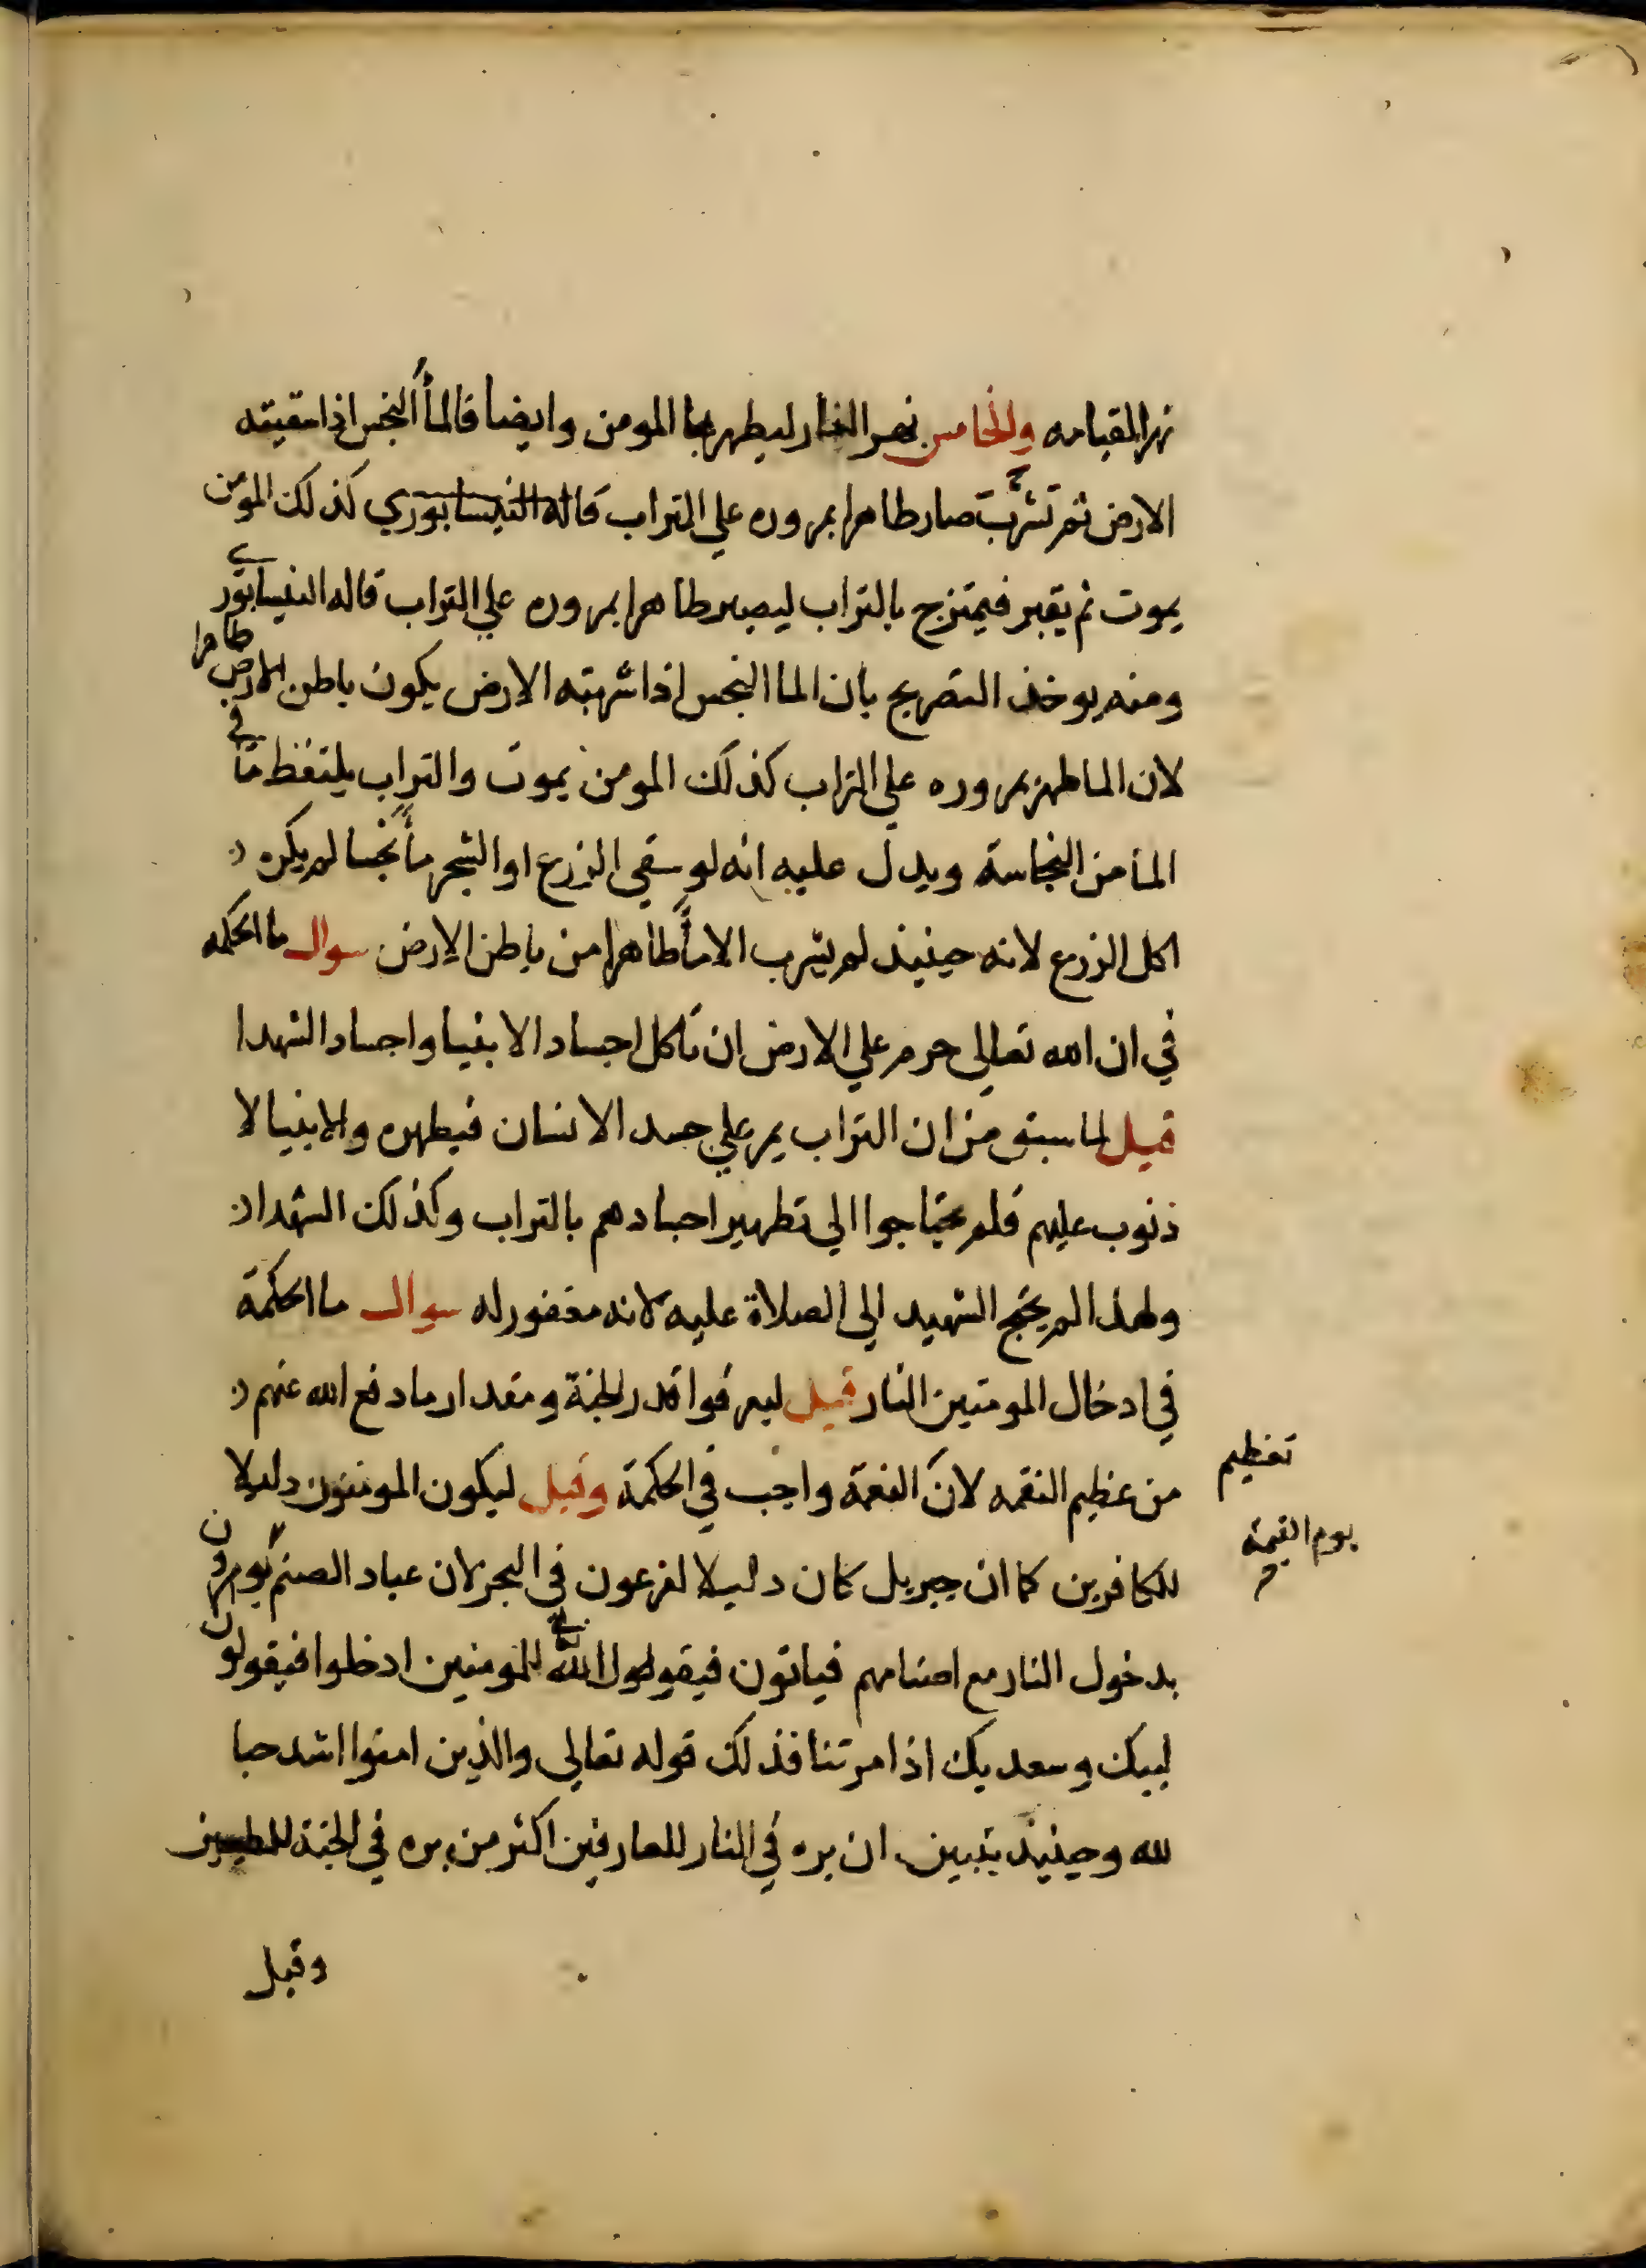 نهر القيامه والخامس نهر النار ليطهر بها المومن وايضا فالمأ النجس اذا سقيته
الارض ثم تشربت صار طاهرا بمروره علي التراب قاله النيسابوري كذلك المومن
يموت ثم يقبر فيمتزج بالتراب ليصير طاهرا بمروره علي التراب قاله النيسابوري
ومنه يوخذ التصريح بان الما النجس اذا شربته الارض يكون باطن الارض طاهرا
لان الما طهر بمروره علي التراب كذلك المومن يموت والتراب يلتفظ ما في
الما من النجاسة ويدل عليه انه لو سقي الزرع او الشجر مأ نجسا لم يكره
اكل الزرع لانه حينيذ لم يشرب الا مأ طاهرا من باطن الارض سوال ما الحكمه
في ان الله تعالي حرم علي الارض ان تاكل اجساد الانبيا واجساد الشهدا
قيل لما سبق من ان التراب يمر علي جسد الانسان فيطهره والانبيا لا
ذنوب عليهم فلم يحتاجوا الي تطهير اجسادهم بالتراب وكذلك الشهدا
ولهذا لم يحتج الشهيد الي الصلاة عليه لانه مغفور له سوال ما الحكمة
في ادخال المومنين النار قيل ليعرفوا قدر الجنة ومقدار ما دفع الله عنهم
من عظيم النقمه لان النعمة واجب في الحكمة وقيل ليكون المومنون دليلا
تعظيم
للكافرين كما ان جبريل كان دليلا لفرعون في البحر لان عباد الصنم يومرون
يوم القيمة
بدخول النار مع اصنامهم فياتون فيقول الله تعالي للمومنين ادخلوا فيقولون
لبيك وسعديك اذا مرتنا فذلك قوله تعالي والذين امنوا اشد حبا
لله وحينيذ يتبين ان بره في النار للعارفين اكثر من بره في الجنة
وقيل